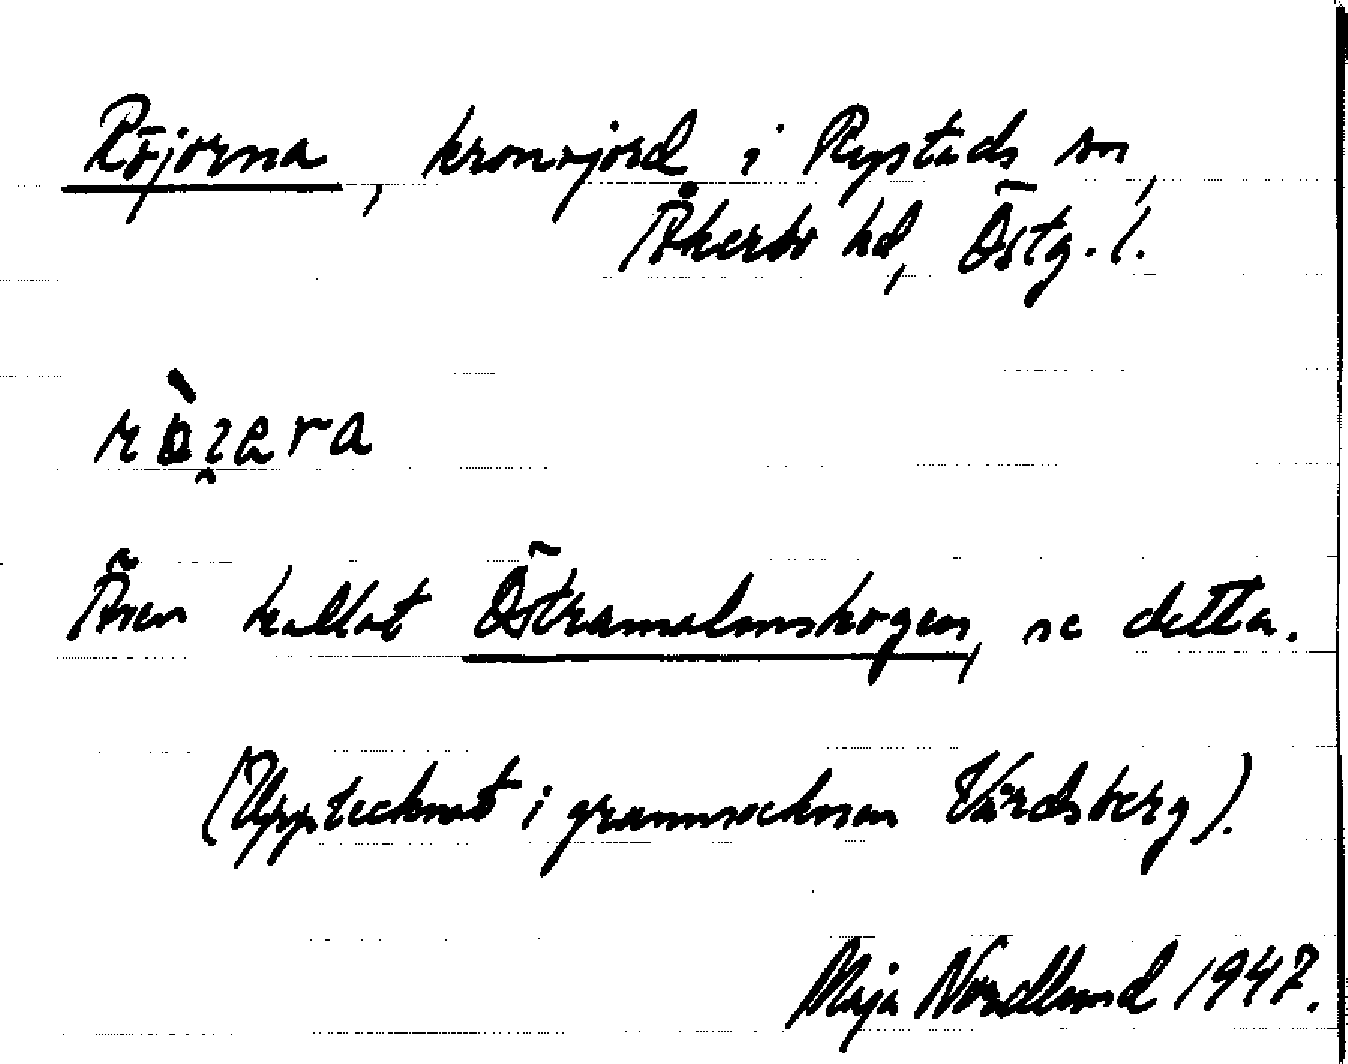 Röjorna, kronojord i Rystads sn,
Åkerbo hd, Östg. l.
Även kallat Östramalmskogen, se detta.
(Upptecknat i grannsocknen Vårdsberg).
Maja Nordlund 1947.